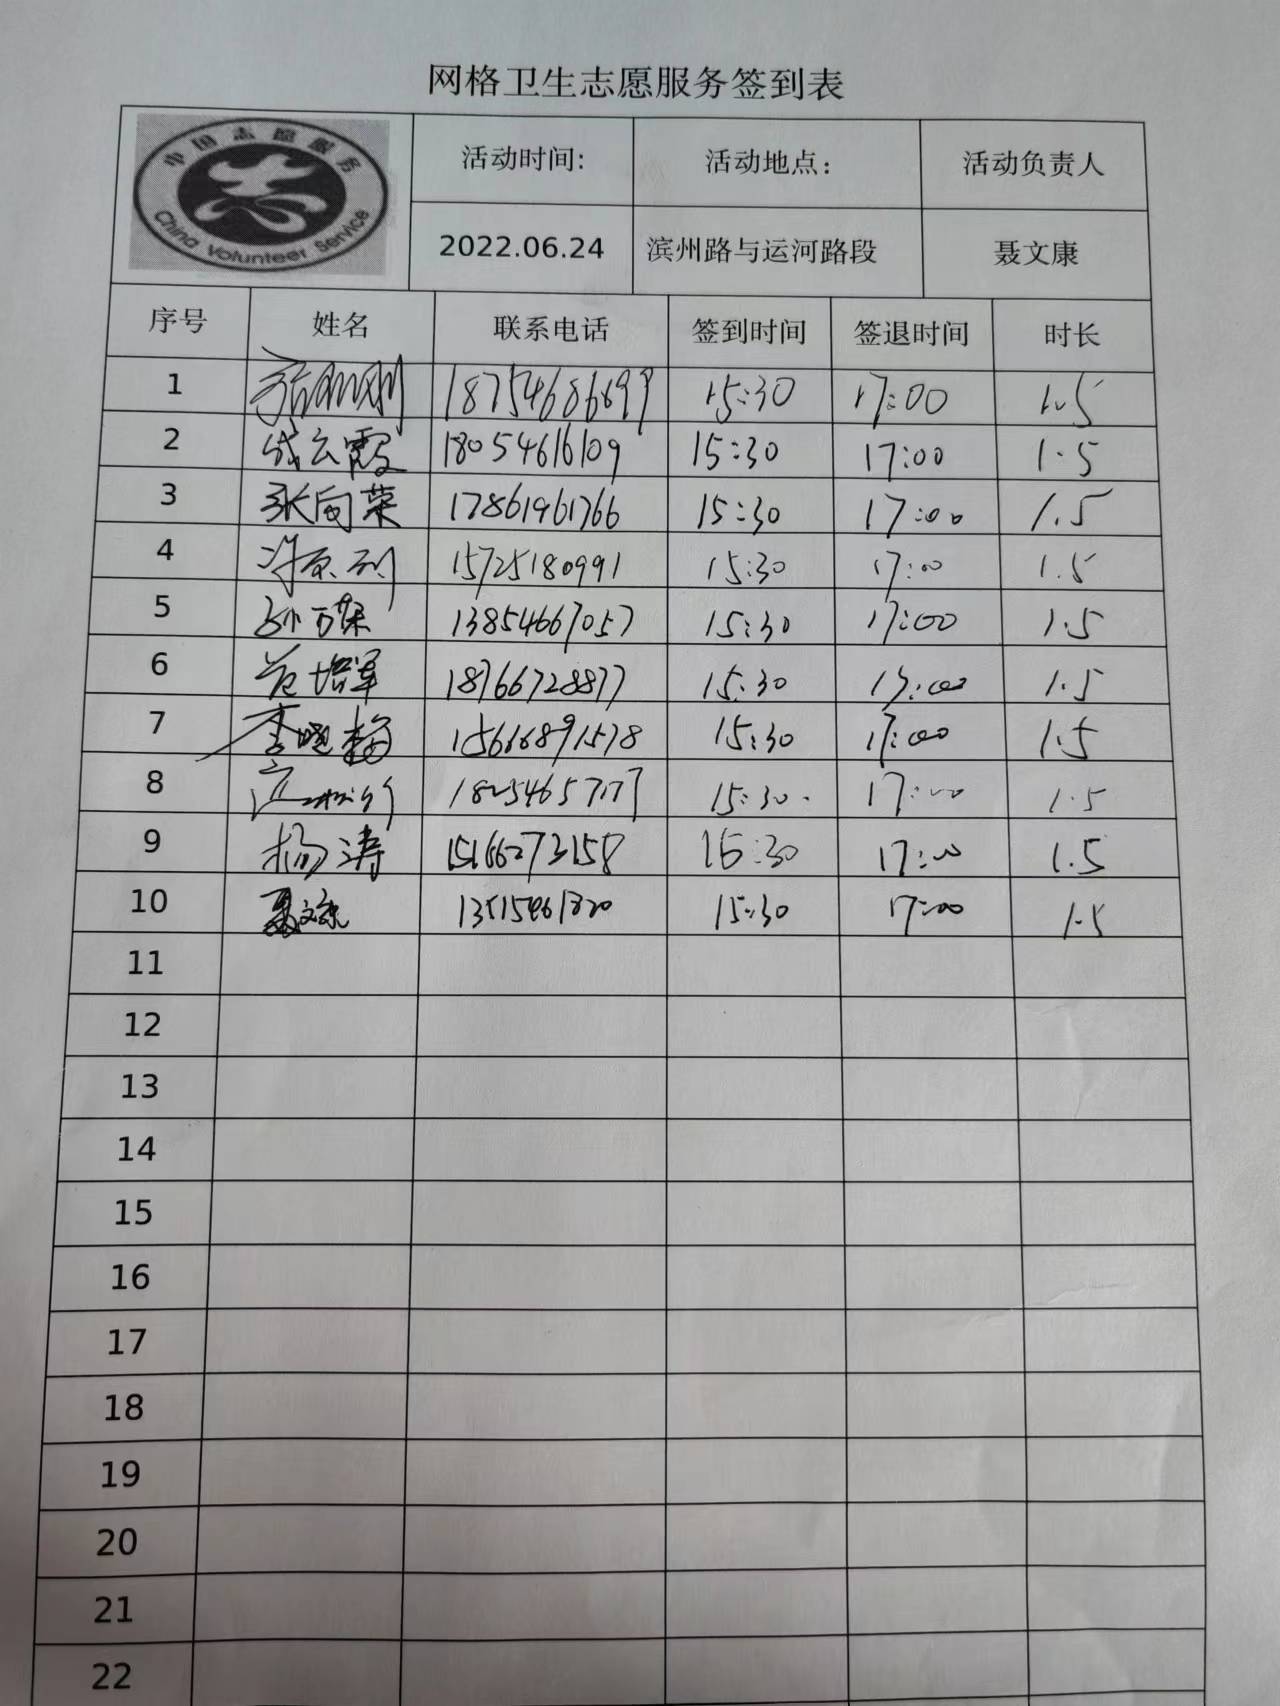 网格卫生志愿服务签到表
中国志愿服务
China Volunteer Service
活动时间: 活动地点: 活动负责人
2022.06.24 滨州路与运河路段 聂文康
序号 姓名 联系电话 签到时间 签退时间 时长
1 18754686699 15:30 17:00 1.5
2 成云霞 18054616109 15:30 17:00 1.5
3 张向荣 17861961766 15:30 17:00 1.5
4 15725180991 15:30 17:00 1.5
5 孙万荣 13854667057 15:30 17:00 1.5
6 范培军 18766728877 15:30 17:00 1.5
7 李晓梅 15666891578 15:30 17:00 1.5
8 15:30 17:00 1.5
9 杨涛 15166273158 16:30 17:00 1.5
10 聂文康 15:30 17:00 1.5
11
12
13
14
15
16
17
18
19
20
21
22